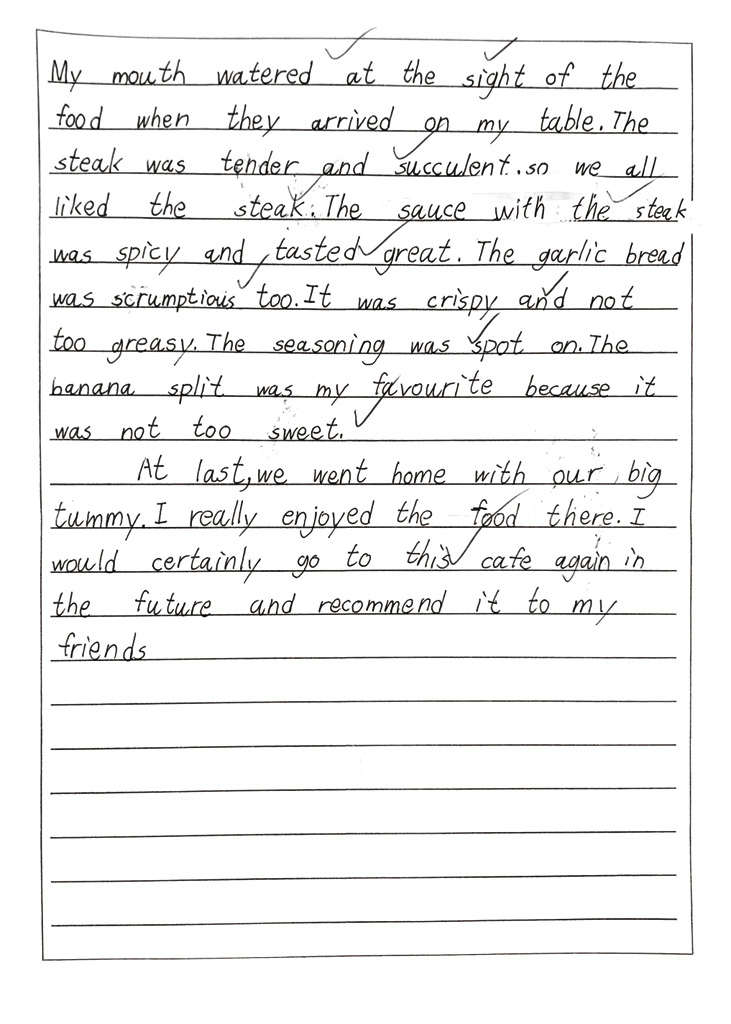 My mouth watered at the sight of the
food when they arrived on my table. The
steak was tender and succulent. so we all
liked the steak. The sauce with the steak
was spicy and tasted great. The garlic bread
was scrumptious too. It was crispy and not
too greasy. The seasoning was spot on. The
banana split was my favourite because it
was not too sweet.
At last, we went home with our big
tummy. I really enjoyed the food there. I
would certainly go to this cafe again in
the future and recommend it to my
friends